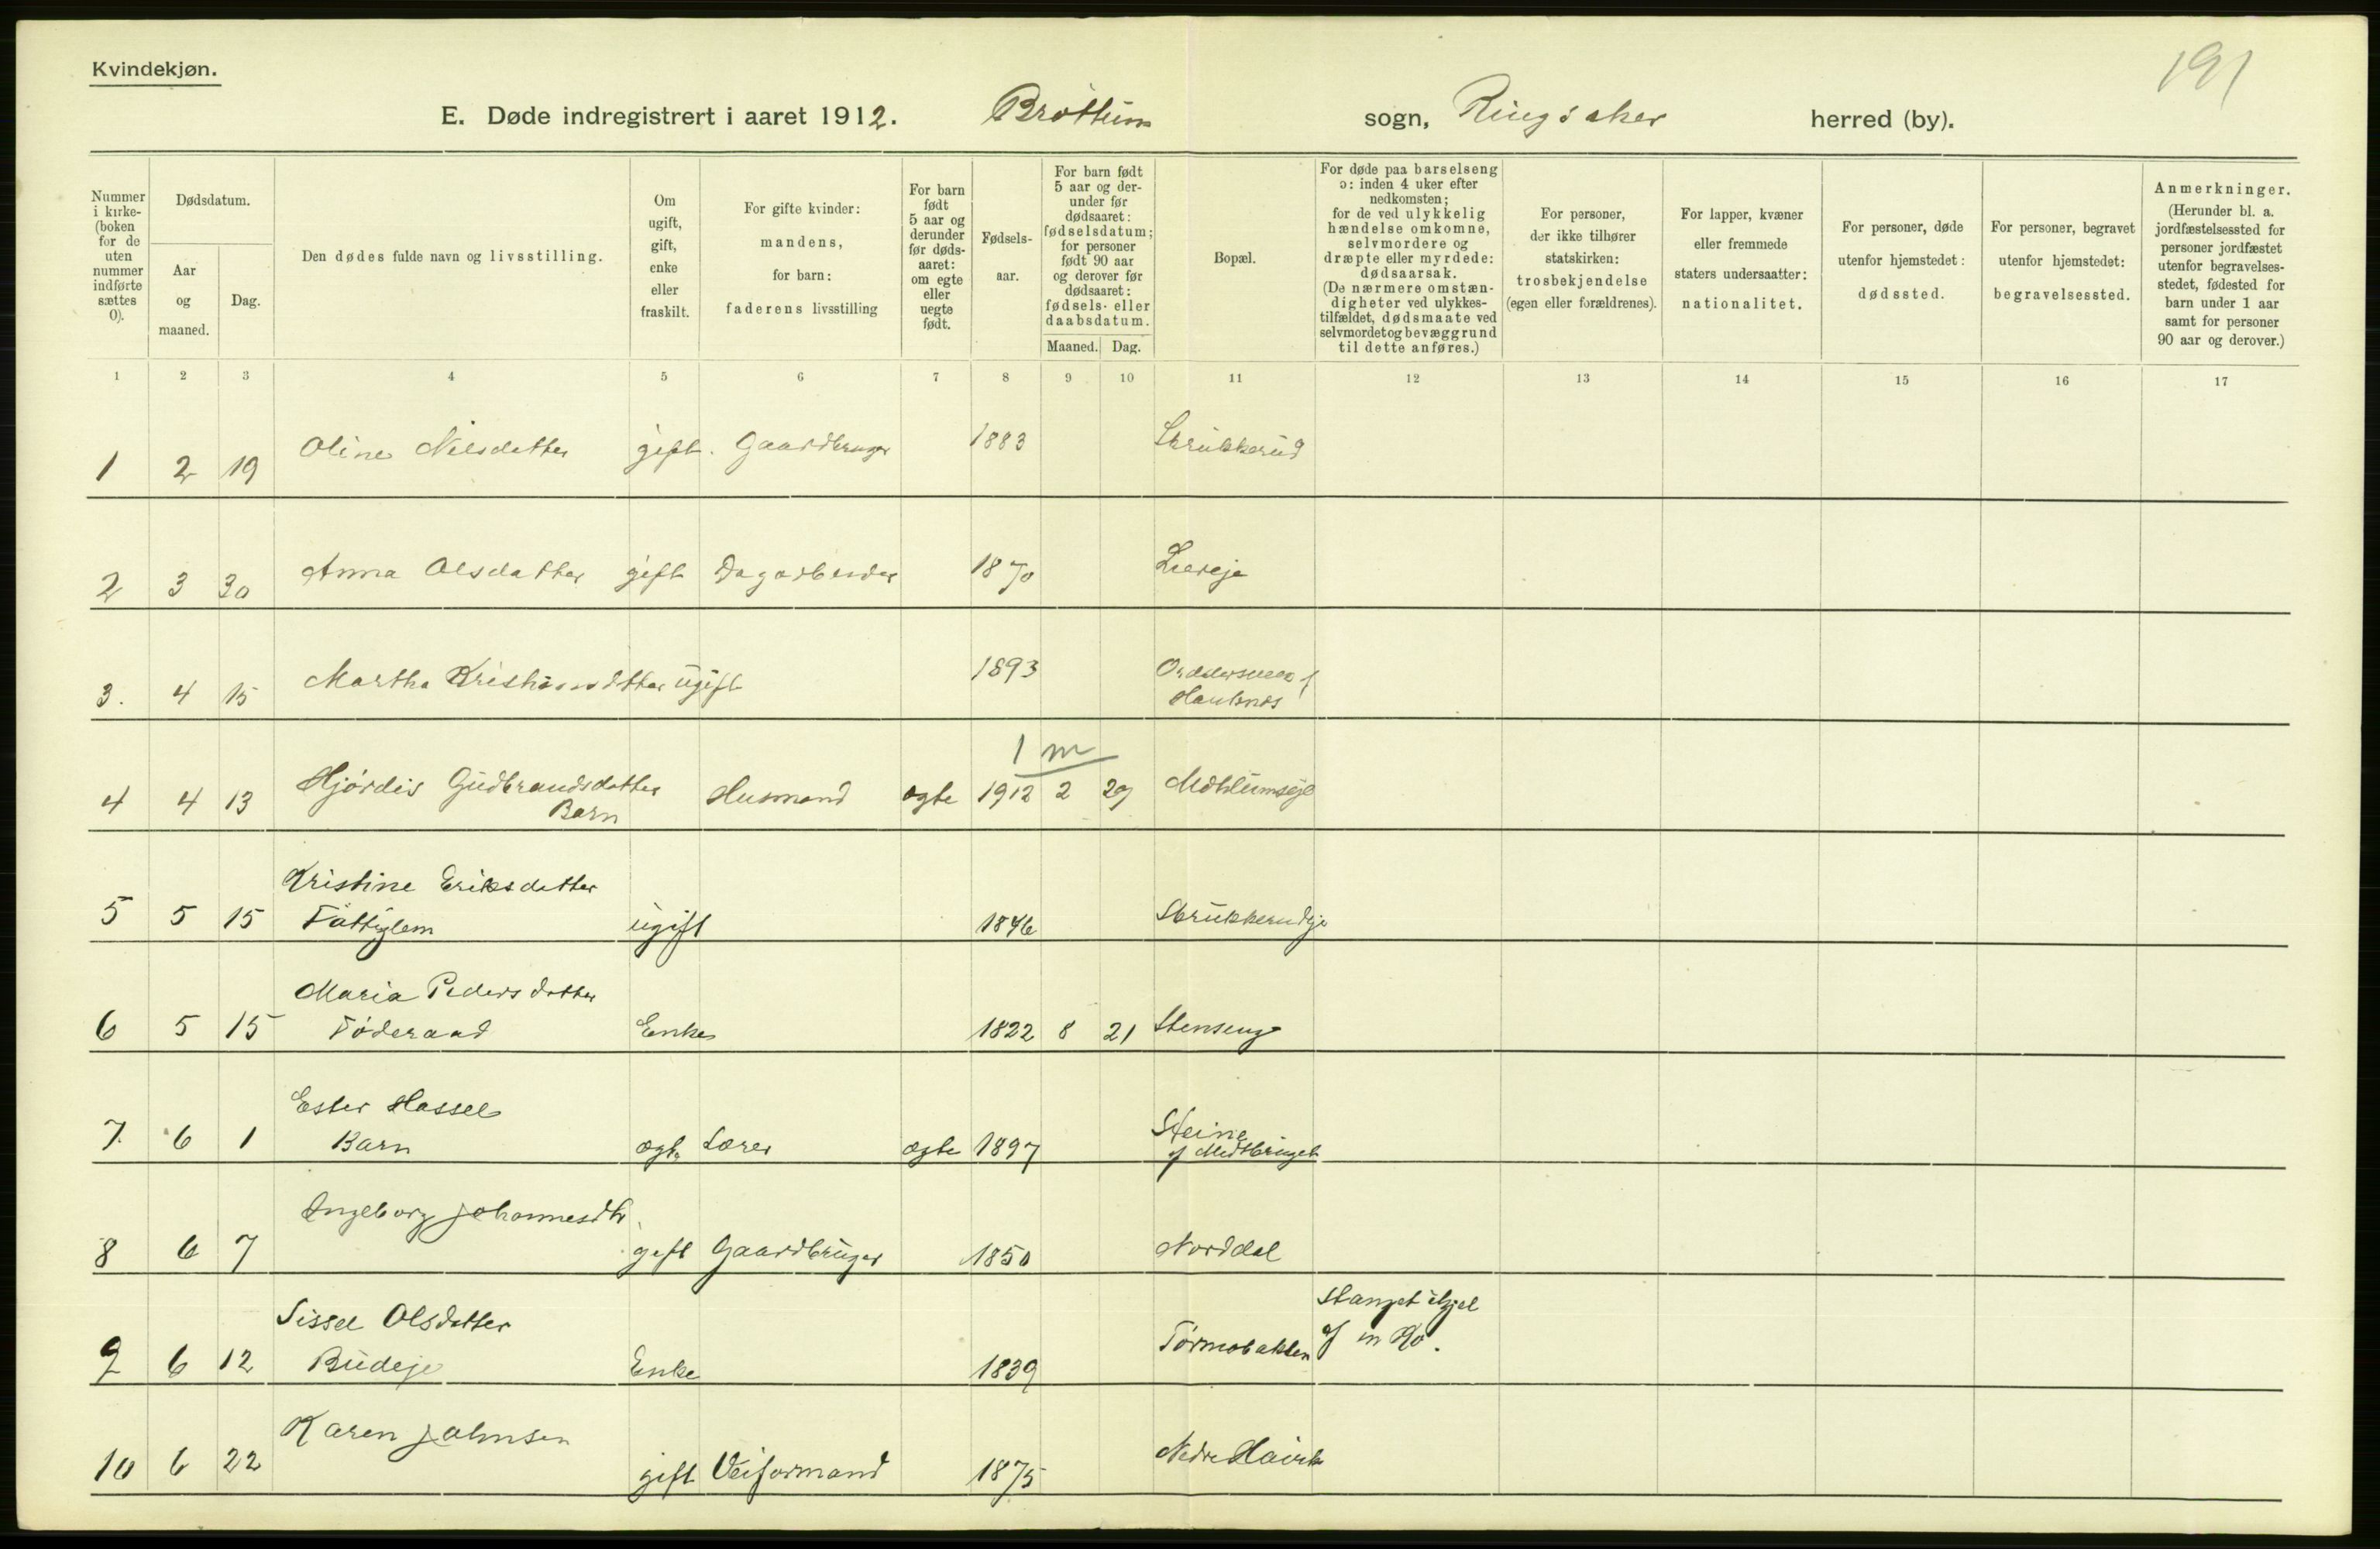 Kvindekjøn.
191
E. Døde indregistrert i aaret 1912. Brøttum sogn, Ringsaker herred (by).
Nummer i kirke- (boken for de uten nummer indførte sættes 0).
Dødsdatum.
Aar og maaned.
Dag.
Den dødes fulde navn og livsstilling.
Om ugift, gift, enke eller fraskilt.
For gifte kvinder: mandens, for barn: faderens livsstilling
For barn født 5 aar og derunder før døds- aaret: om egte eller uegte født.
Fødsels- aar.
For barn født 5 aar og der- under før dødsaaret: fødselsdatum; for personer født 90 aar og derover før dødsaaret: fødsels- eller daabsdatum.
Maaned. Dag.
Bopæl.
For døde paa barselseng ɔ: inden 4 uker efter nedkomsten; for de ved ulykkelig hændelse omkomne, selvmordere og dræpte eller myrdede: dødsaarsak. (De nærmere omstæn- digheter ved ulykkes- tilfældet, dødsmaate ved selvmordet og bevæggrund til dette anføres.)
For personer, der ikke tilhører statskirken: trosbekjendelse (egen eller forældrenes).
For lapper, kvæner eller fremmede staters undersaatter: nationalitet.
For personer, døde utenfor hjemstedet: dødssted.
For personer, begravet utenfor hjemstedet: begravelsessted.
Anmerkninger. (Herunder bl. a. jordfæstelsessted for personer jordfæstet utenfor begravelses- stedet, fødested for barn under 1 aar samt for personer 90 aar og derover.)
1 2 3 4 5 6 7 8 9 10 11 12 13 14 15 16 17
1 2 19 Oline Nilsdatter gift. Gaardbruger 1883 Skrukkerud
2 3 30 Anna Olsdatter gift Dagarbeider 1870 Liereje
3. 4 15 Martha Kristiansdatter ugift 1893
1 m
4 4 13 Hjørdis Gudbrandsdatter Husmand ægte 1912 2 29
Barn
Kristine Eriksdatter
5 5 15 Fattiglem ugift 1846 Skrukkerudeje
Maria Pedersdatter
6 5 15 Føderaad Enke 1822 8 21 Stenseng
Ester Hassel
7. 6 1 Barn ægte Lærer ægte 1897 Steine
Ingeborg Johannesdtr.
8 6 7 gift Gaardbruger 1850 Norddal
Sissel Olsdatter Stanget ihjel
9 6 12 Budeje Enke 1839 Tørmobakken af en Ko.
Karen Johnsen
10 6 22 gift Veiformand 1875 Nedre